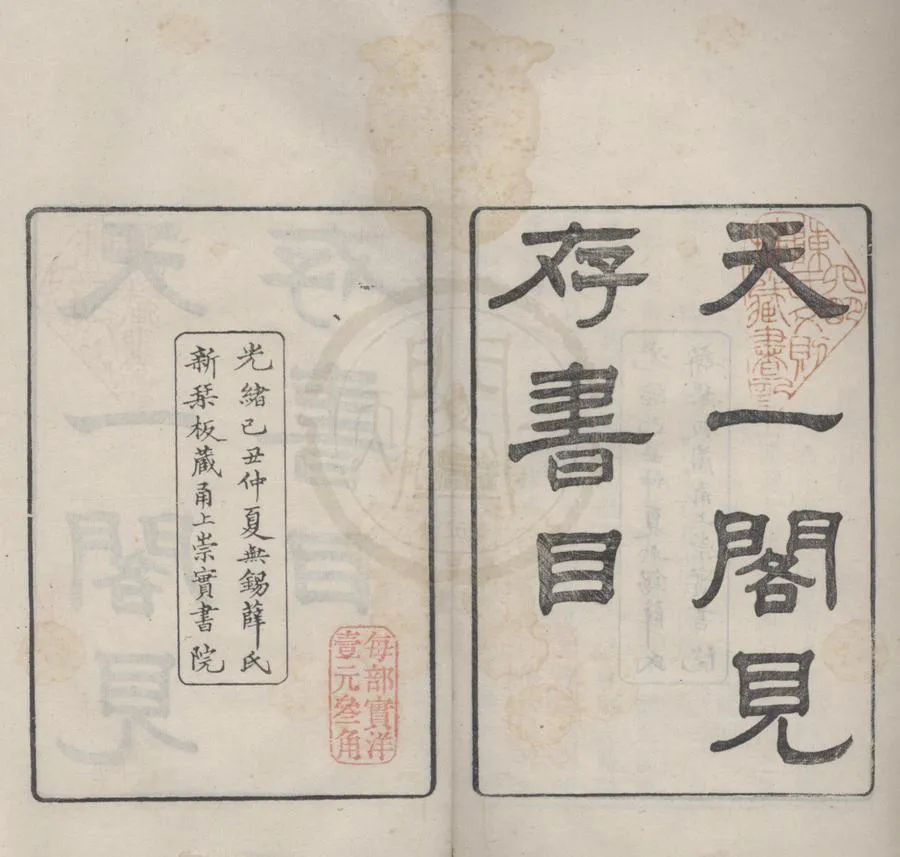 天一閣見
存書目
光緒己丑仲夏無錫薛氏
新栞板藏甬上崇實書院
每部實洋
壹元叁角